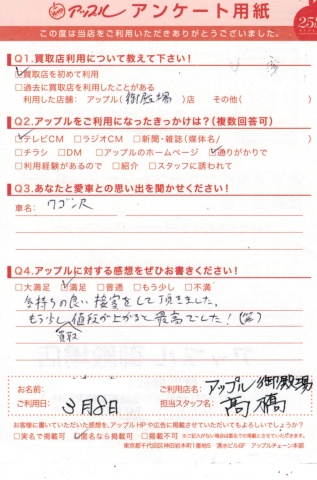 アップル アンケート用紙
この度は当店をご利用いただきありがとうございました。
Q1.買取店利用について教えて下さい!
☑買取店を初めて利用
□過去に買取店を利用したことがある
利用した店舗： アップル( 御殿場 )店 その他( )
Q2.アップルをご利用になったきっかけは?(複数回答可)
☑テレビCM □ラジオCM □新聞・雑誌(媒体名 )
□チラシ □DM □アップルのホームページ ☑通りがかりで
□利用経験があるので □紹介 □スタッフに誘われて
Q3.あなたと愛車との思い出を聞かせください!
車名： ワゴンR
Q4.アップルに対する感想をぜひお書きください!
□大満足 ☑満足 □普通 □もう少し □不満
気持ちの良い接客をして頂きました。
もう少し買取値段が上がると最高でした!(笑)
お名前：
ご利用店名： アップル御殿場
ご利用日： 3月8日
担当スタッフ名： 高橋
お客様に書いていただいた感想を、アップルHPや広告に掲載させていただいてもよろしいでしょうか?
□実名で掲載可 ☑匿名なら掲載可 □掲載不可 ※ご記入がない場合は匿名での掲載とさせていただきます。
東京都千代田区神田岩本町1番地5 清水ビル6F アップルチェーン本部